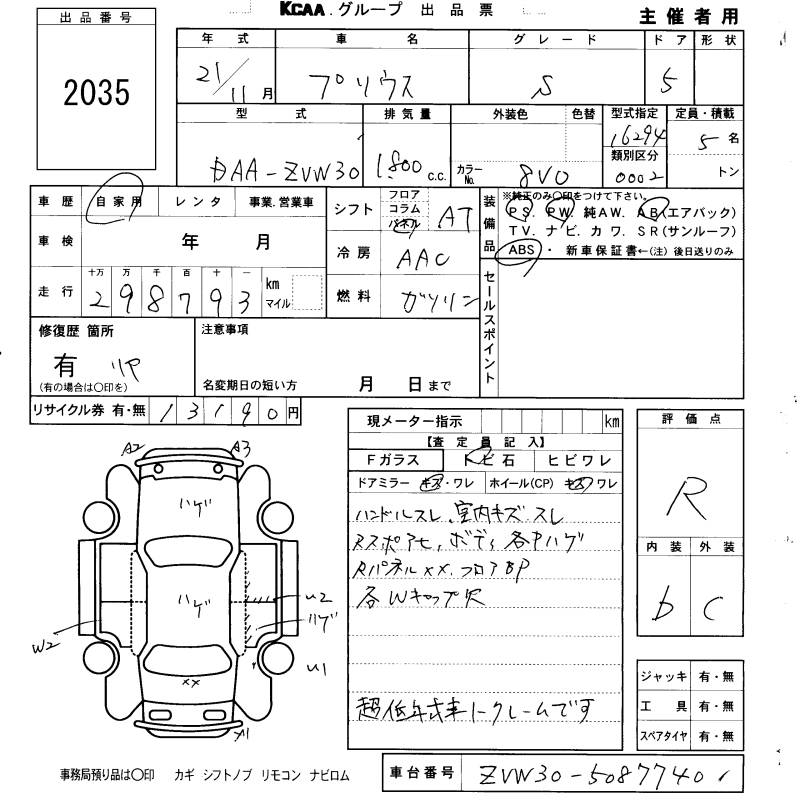 KCAA グループ 出品票
主催者用
出品番号
2035
年式 車名 グレード ドア 形状
21/11月 プリウス S 5
型式 排気量 外装色 色替 型式指定 定員・積載
DAA-ZVW30 1800c.c. カラーNo. 8V0 16294 5名
類別区分
0002 トン
車歴 自家用 レンタ 事業.営業車
シフト フロア コラム パネル AT
装備品
※純正のみ〇印をつけて下さい。
PS. PW. 純AW. AB(エアバック)
TV. ナビ. カワ. SR(サンルーフ)
ABS ・ 新車保証書←(注)後日送りのみ
車検 年 月
冷房 AAC
走行 十万 万 千 百 十 一 km マイル
298793
燃料 ガソリン
セールスポイント
修復歴 箇所
有 リヤ
(有の場合は〇印を)
注意事項
名変期日の短い方 月 日まで
リサイクル券 有・無 13190円
現メーター指示 km
【査定員記入】
Fガラス トビ石 ヒビワレ
ドアミラー キズ・ワレ ホイール(CP) キズ・ワレ
ハンドルスレ、室内キズ・スレ
Rスポアセ、ボディ各中ハゲ
Rパネルxx. フロアBP
各Wキャップ欠
超低年式車ノークレームです
評価点
R
内装 外装
b C
A2 A3
ハゲ
ハゲ
U2
ハゲ
W2
U1
xx
A1
ジャッキ 有・無
工具 有・無
スペアタイヤ 有・無
事務局預り品は〇印 カギ シフトノブ リモコン ナビロム
車台番号 ZVW30-5087740